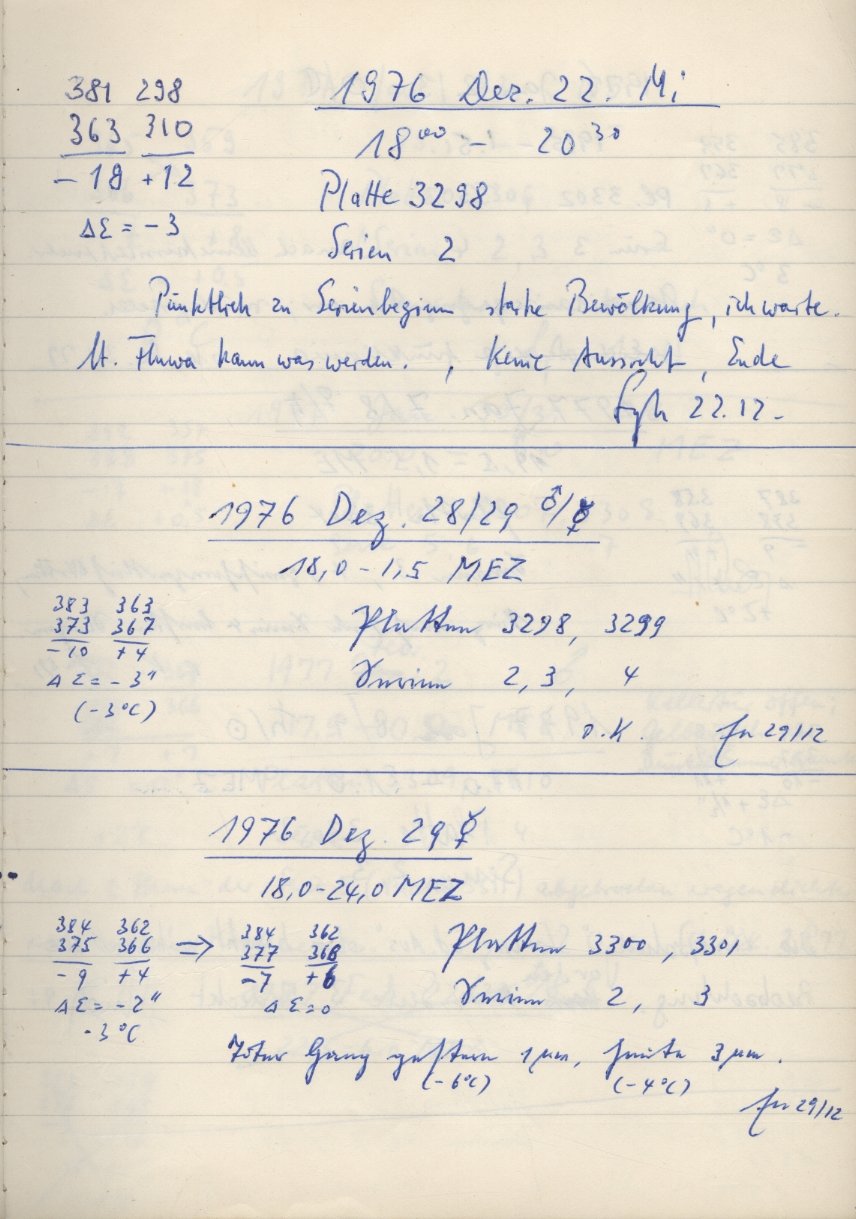 381 298
363 310
-18 +12
ΔΣ = -3
1976 Dez. 22. Mi
18⁰⁰ - 20³⁰
Platte 3298
Serien 2
Pünktlich zu Serienbeginn starke Bewölkung, ich warte.
lt. Fluwa kann was werden. , Keine Aussicht, Ende
22.12.
1976 Dez. 28/29 ♂/☿
18,0-1,5 MEZ
383 363
373 367
-10 +4
ΔΣ = -3"
(-3°C)
Platten 3298, 3299
Serien 2, 3, 4
o.K. 29/12
1976 Dez. 29 ☿
18,0-24,0 MEZ
384 362
375 366
-9 +4
ΔΣ = -2"
-3°C
⇒
384 362
377 368
-7 +6
ΔΣ = 0
Platten 3300, 3301
Serien 2, 3
Toter Gang gestern 1µm, heute 3µm.
(-6°C) (-4°C)
29/12